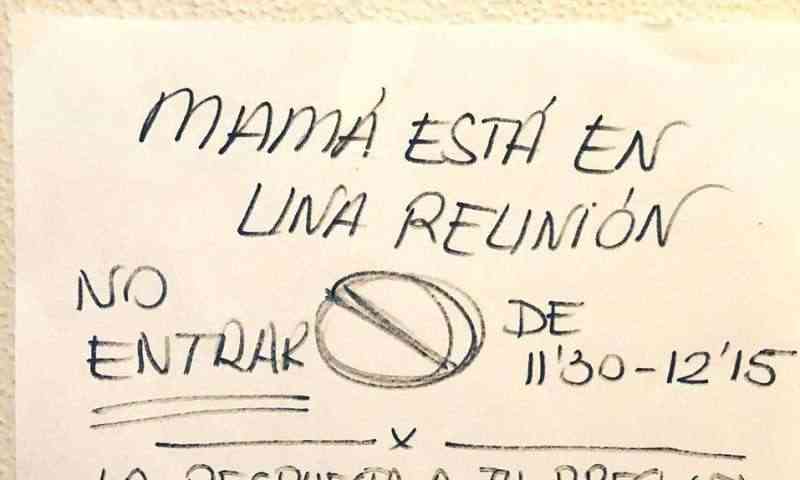 MAMÁ ESTÁ EN
UNA REUNIÓN
NO
ENTRAR
DE
11'30-12'15
x
LA RESPUESTA A TU